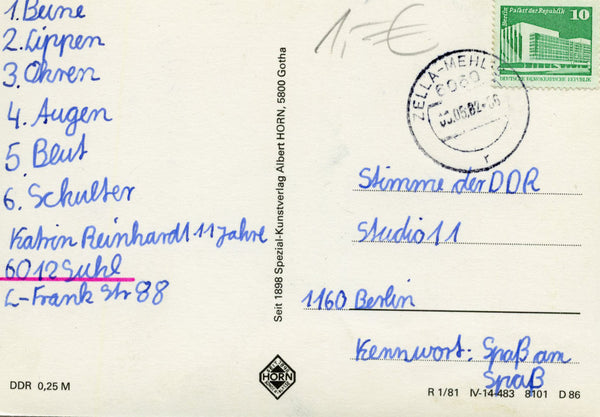 1. Beine
2. Lippen
3. Ohren
4. Augen
5. Blut
6. Schulter
Katrin Reinhardt 11 Jahre
6012 Suhl
L-Frank Str 88
DDR 0,25 M
Seit 1898 Spezial-Kunstverlag Albert HORN, 5800 Gotha
HORN
1,- €
ZELLA-MEHLIS
6060
.82-
r
Berlin Palast der Republik
10
DEUTSCHE DEMOKRATISCHE REPUBLIK
Stimme der DDR
Studio 11
1160 Berlin
Kennwort: Spaß am
Spaß
R 1/81 IV-14-483 8101 D 86